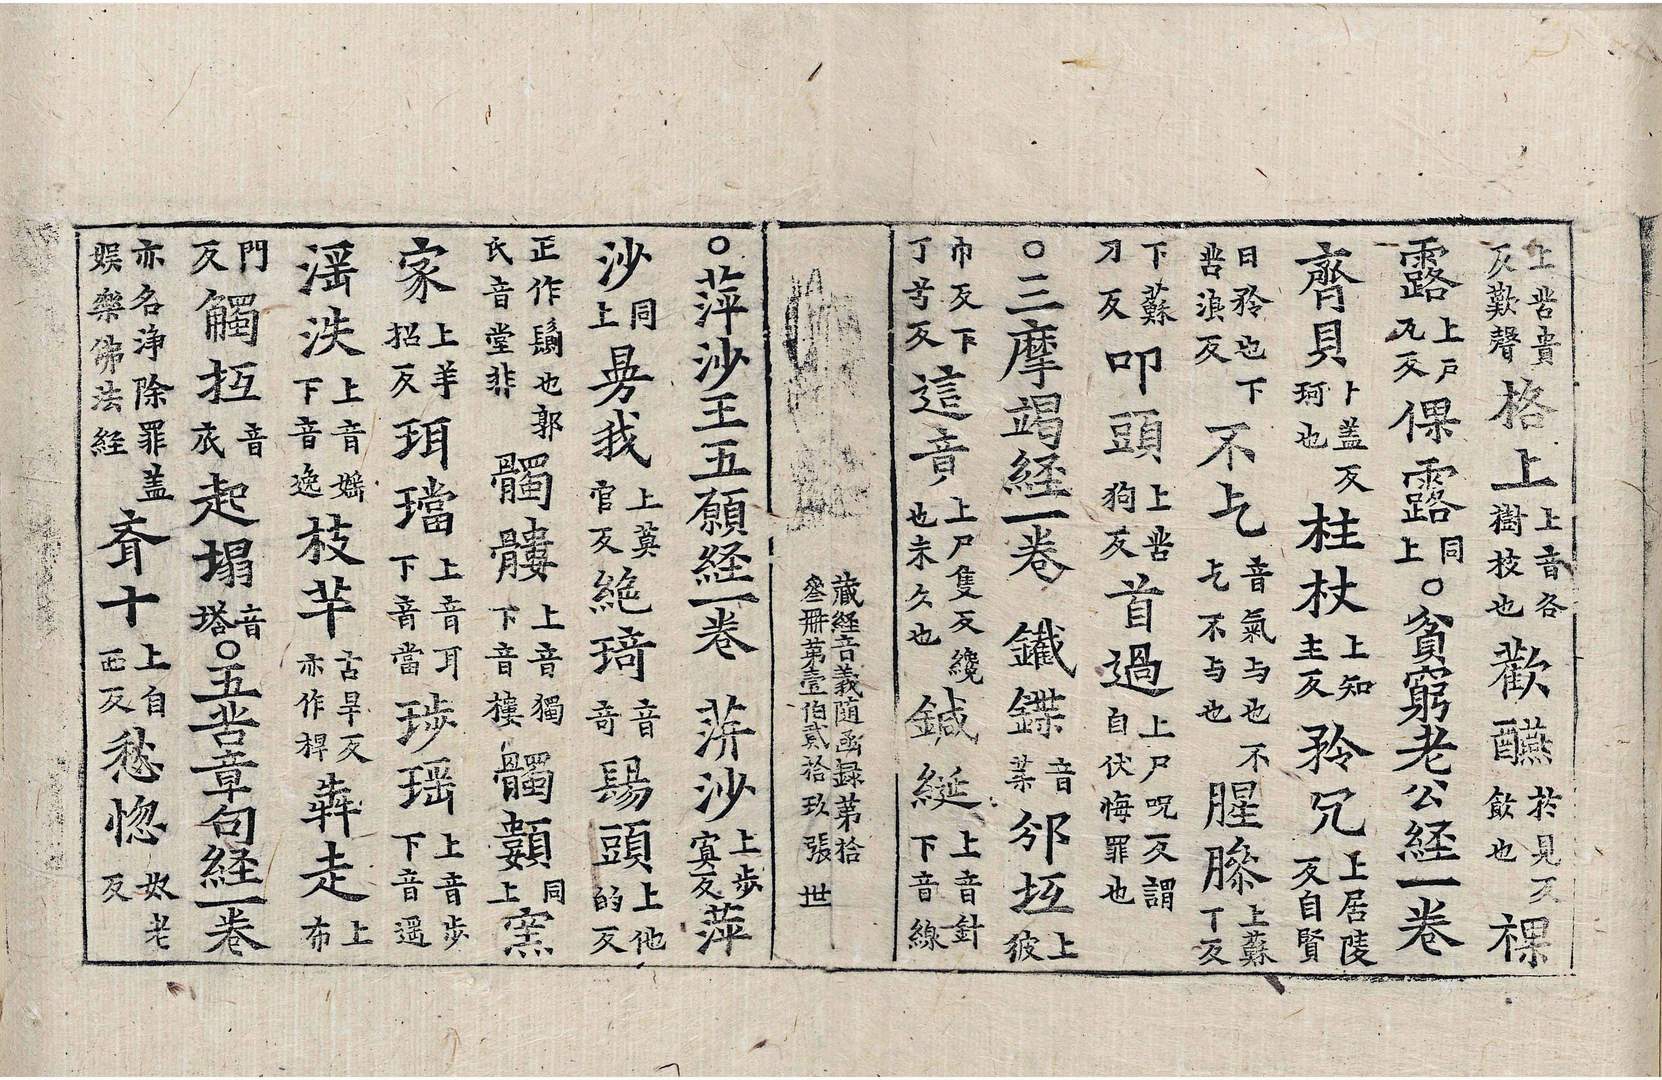 上苦貴反歎聲格上上音各樹枝也歡醼於見反飲也裸
露上戶瓦反倮露同上○貧窮老公経一卷
齊貝卜盖反珂也柱杖上知主反矜兄上居陵反自賢
曰矜也下苦滇反不乞音氣与也不乞不与也腥臊上蘇丁反
下蘇刀反叩頭上苦狗反首過上尸呪反謂自伏悔罪也
○三摩竭経一卷 鐵鍱音葉邠坻上彼
巾反下丁兮反這音上尸隻反纔也未久也鍼綖上音針下音線
藏経音義随函録第拾
叄冊第壹伯貳拾玖張 世
○蓱沙王五願経一卷 蓱沙上步寞反萍
沙同上昜我上莫官反絶琦音奇鬄頭上他的反
正作鬄也郭氏音堂非髑髏上音獨下音樓髑䫫同上窯
家上羊招反珥璫上音耳下音當珎瑶上音步下音遥
滛泆上音婬下音逸枝芉古旱反亦作桿犇走上布
門反觸㧗音衣起塌音塔○五苦章句経一卷
亦名浄除罪盖娱樂佛法経斉十上自西反愁惚奴老反